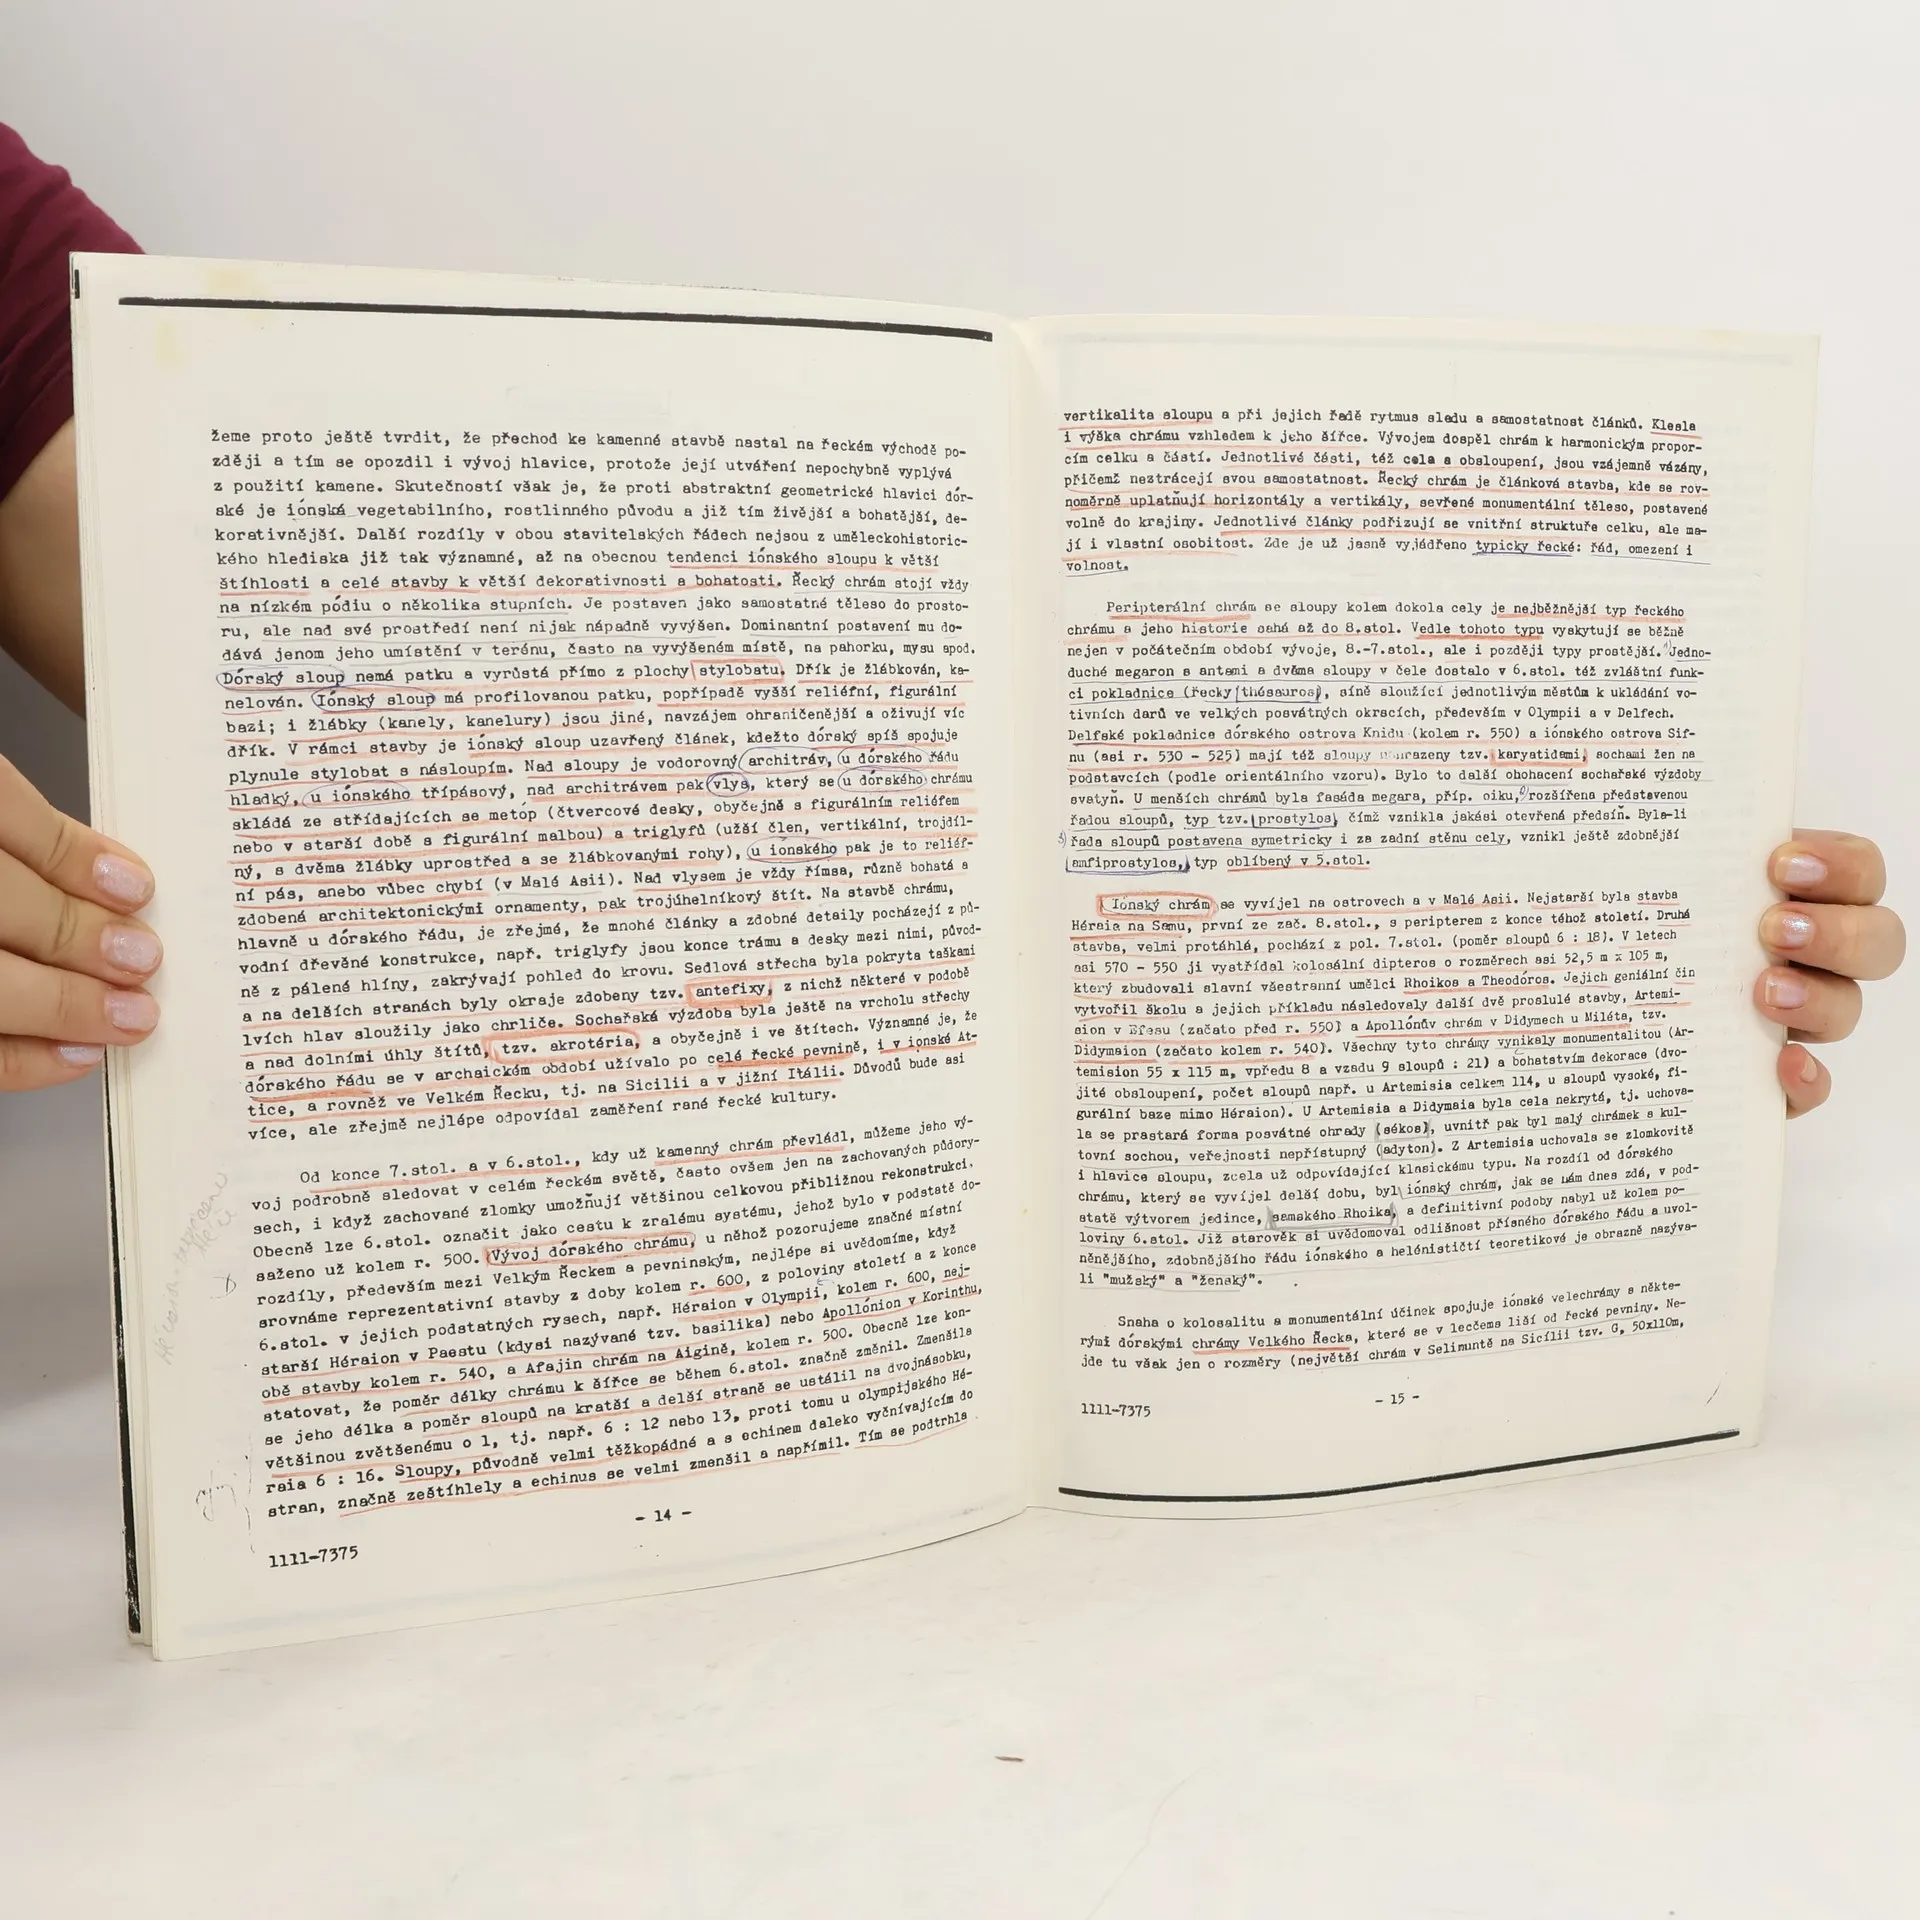 žeme proto ještě tvrdit, že přechod ke kamenné stavbě nastal na řeckém východě po-
zději a tím se opozdil i vývoj hlavice, protože její utváření nepochybně vyplývá
z použití kamene. Skutečností však je, že proti abstraktní geometrické hlavici dór-
ské je iónská vegetabilního, rostlinného původu a již tím živější a bohatější, de-
korativnější. Další rozdíly v obou stavitelských řádech nejsou z uměleckohistoric-
kého hlediska již tak významné, až na obecnou tendenci iónského sloupu k větší
štíhlosti a celé stavby k větší dekorativnosti a bohatosti. Řecký chrám stojí vždy
na nízkém pódiu o několika stupních. Je postaven jako samostatné těleso do prosto-
ru, ale nad své prostředí není nijak nápadně vyvýšen. Dominantní postavení mu do-
dává jenom jeho umístění v terénu, často na vyvýšeném místě, na pahorku, mysu apod.
Dórský sloup nemá patku a vyrůstá přímo z plochy stylobatu. Dřík je žlábkován, ka-
nelován. Iónský sloup má profilovanou patku, popřípadě vyšší reliéfní, figurální
bazi; i žlábky (kanely, kanelury) jsou jiné, navzájem ohraničenější a oživují víc
dřík. V rámci stavby je iónský sloup uzavřený článek, kdežto dórský spíš spojuje
plynule stylobat s násloupím. Nad sloupy je vodorovný architráv, u dórského řádu
hladký, u iónského třípásový, nad architrávem pak vlys, který se u dórského chrámu
skládá ze střídajících se metop (čtvercové desky, obyčejně s figurálním reliéfem
nebo v starší době s figurální malbou) a triglyfů (užší člen, vertikální, trojdíl-
ný, s dvěma žlábky uprostřed a se žlábkovanými rohy), u ionského pak je to reliéf-
ní pás, anebo vůbec chybí (v Malé Asii). Nad vlysem je vždy římsa, různě bohatá a
zdobená architektonickými ornamenty, pak trojúhelníkový štít. Na stavbě chrámu,
hlavně u dórského řádu, je zřejmé, že mnohé články a zdobné detaily pocházejí z pů-
vodní dřevěné konstrukce, např. triglyfy jsou konce trámu a desky mezi nimi, původ-
ně z pálené hlíny, zakrývají pohled do krovu. Sedlová střecha byla pokryta taškami
a na delších stranách byly okraje zdobeny tzv. antefixy, z nichž některé v podobě
lvích hlav sloužily jako chrliče. Sochařská výzdoba byla ještě na vrcholu střechy
a nad dolními úhly štítů, tzv. akrotéria, a obyčejně i ve štítech. Významné je, že
dórského řádu se v archaickém období užívalo po celé řecké pevnině, i v ionské At-
tice, a rovněž ve Velkém Řecku, tj. na Sicilii a v jižní Itálii. Důvodů bude asi
více, ale zřejmě nejlépe odpovídal zaměření rané řecké kultury.
Od konce 7.stol. a v 6.stol., kdy už kamenný chrám převládl, můžeme jeho vý-
voj podrobně sledovat v celém řeckém světě, často ovšem jen na zachovaných půdory-
sech, i když zachované zlomky umožňují většinou celkovou přibližnou rekonstrukci.
Obecně lze 6.stol. označit jako cestu k zralému systému, jehož bylo v podstatě do-
saženo už kolem r. 500. Vývoj dórského chrámu, u něhož pozorujeme značné místní
rozdíly, především mezi Velkým Řeckem a pevninským, nejlépe si uvědomíme, když
srovnáme reprezentativní stavby z doby kolem r. 600, z poloviny století a z konce
6.stol. v jejich podstatných rysech, např. Héraion v Olympii, kolem r. 600, nej-
starší Héraion v Paestu (kdysi nazývané tzv. basilika) nebo Apollónion v Korinthu,
obě stavby kolem r. 540, a Afajin chrám na Aigině, kolem r. 500. Obecně lze kon-
statovat, že poměr délky chrámu k šířce se během 6.stol. značně změnil. Zmenšila
se jeho délka a poměr sloupů na kratší a delší straně se ustálil na dvojnásobku,
většinou zvětšenému o 1, tj. např. 6 : 12 nebo 13, proti tomu u olympijského Hé-
raia 6 : 16. Sloupy, původně velmi těžkopádné a s echinem daleko vyčnívajícím do
stran, značně zeštíhlely a echinus se velmi zmenšil a napřímil. Tím se podtrhla
- 14 -
1111-7375
vertikalita sloupu a při jejich řadě rytmus sledu a samostatnost článků. Klesla
i výška chrámu vzhledem k jeho šířce. Vývojem dospěl chrám k harmonickým propor-
cím celku a částí. Jednotlivé části, též cela a obsloupení, jsou vzájemně vázány,
přičemž neztrácejí svou samostatnost. Řecký chrám je článková stavba, kde se rov-
noměrně uplatňují horizontály a vertikály, sevřené monumentální těleso, postavené
volně do krajiny. Jednotlivé články podřizují se vnitřní struktuře celku, ale ma-
jí i vlastní osobitost. Zde je už jasně vyjádřeno typicky řecké: řád, omezení i
volnost.
Peripterální chrám se sloupy kolem dokola cely je nejběžnější typ řeckého
chrámu a jeho historie sahá až do 8.stol. Vedle tohoto typu vyskytují se běžně
nejen v počátečním období vývoje, 8.-7.stol., ale i později typy prostější. Jedno-
duché megaron s antami a dvěma sloupy v čele dostalo v 6.stol. též zvláštní funk-
ci pokladnice (řecky thésauros), síně sloužící jednotlivým městům k ukládání vo-
tivních darů ve velkých posvátných okrscích, především v Olympii a v Delfech.
Delfské pokladnice dórského ostrova Knidu (kolem r. 550) a iónského ostrova Sif-
nu (asi r. 530 - 525) mají též sloupy nahrazeny tzv. karyatidami, sochami žen na
podstavcích (podle orientálního vzoru). Bylo to další obohacení sochařské výzdoby
svatyň. U menších chrámů byla fasáda megara, příp. oiku, rozšířena představenou
řadou sloupů, typ tzv. prostylos, čímž vznikla jakási otevřená předsíň. Byla-li
řada sloupů postavena symetricky i za zadní stěnu cely, vznikl ještě zdobnější
amfiprostylos, typ oblíbený v 5.stol.
Iónský chrám se vyvíjel na ostrovech a v Malé Asii. Nejstarší byla stavba
Héraia na Samu, první ze zač. 8.stol., s peripterem z konce téhož století. Druhá
stavba, velmi protáhlá, pochází z pol. 7.stol. (poměr sloupů 6 : 18). V letech
asi 570 - 550 ji vystřídal kolosální dipteros o rozměrech asi 52,5 m x 105 m,
který zbudovali slavní všestranní umělci Rhoikos a Theodóros. Jejich geniální čin
vytvořil školu a jejich příkladu následovaly další dvě proslulé stavby, Artemi-
sion v Efesu (začato před r. 550) a Apollónův chrám v Didymech u Miléta, tzv.
Didymaion (začato kolem r. 540). Všechny tyto chrámy vynikaly monumentalitou (Ar-
temision 55 x 115 m, vpředu 8 a vzadu 9 sloupů : 21) a bohatstvím dekorace (dvo-
jité obsloupení, počet sloupů např. u Artemisia celkem 114, u sloupů vysoké, fi-
gurální baze mimo Héraion). U Artemisia a Didymaia byla cela nekrytá, tj. uchova-
la se prastará forma posvátné ohrady (sékos), uvnitř pak byl malý chrámek s kul-
tovní sochou, veřejnosti nepřístupný (adyton). Z Artemisia uchovala se zlomkovitě
i hlavice sloupu, zcela už odpovídající klasickému typu. Na rozdíl od dórského
chrámu, který se vyvíjel delší dobu, byl iónský chrám, jak se nám dnes zdá, v pod-
statě výtvorem jedince, samského Rhoika, a definitivní podoby nabyl už kolem po-
loviny 6.stol. Již starověk si uvědomoval odlišnost přísného dórského řádu a uvol-
něnějšího, zdobnějšího řádu iónského a helénističtí teoretikové je obrazně nazýva-
li "mužský" a "ženský".
Snaha o kolosalitu a monumentální účinek spojuje iónské velechrámy s někte-
rými dórskými chrámy Velkého Řecka, které se v lecčems liší od řecké pevniny. Ne-
jde tu však jen o rozměry (největší chrám v Selinuntě na Sicílii tzv. G, 50x110m,
- 15 -
1111-7375